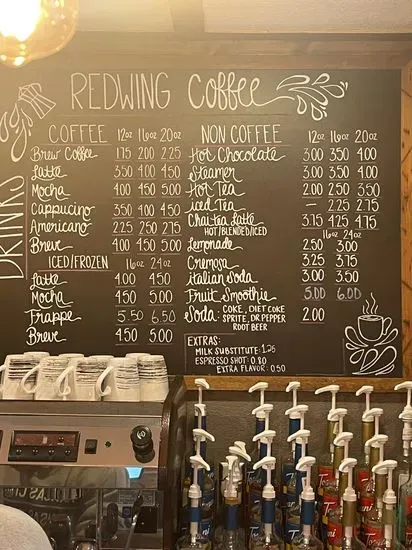 REDWING COFFEE
DRINKS
COFFEE 12oz 16oz 20oz
Brew Coffee 1.75 2.00 2.25
Latte 3.50 4.00 4.50
Mocha 4.00 4.50 5.00
Cappuccino 3.50 4.00 4.50
Americano 2.25 2.50 2.75
Breve 4.00 4.50 5.00
ICED/FROZEN 16oz 24oz
Latte 4.00 4.50
Mocha 4.50 5.00
Frappe 5.50 6.50
Breve 4.50 5.00
NON COFFEE 12oz 16oz 20oz
Hot Chocolate 3.00 3.50 4.00
Steamer 3.00 3.50 4.00
Hot Tea 2.00 2.50 3.50
iced Tea — 2.25 2.75
Chai Tea Latte 3.75 4.25 4.75
HOT/BLENDED/ICED
16oz 24oz
Lemonade 2.50 3.00
Cremosa 3.25 3.75
italian Soda 3.00 3.50
Fruit Smoothie 5.00 6.00
Soda: COKE, DIET COKE 2.00
SPRITE, DR PEPPER
ROOT BEER
EXTRAS:
MILK SUBSTITUTE: 1.25
ESPRESSO SHOT: 0.80
EXTRA FLAVOR: 0.50
Torani
Torani
Torani